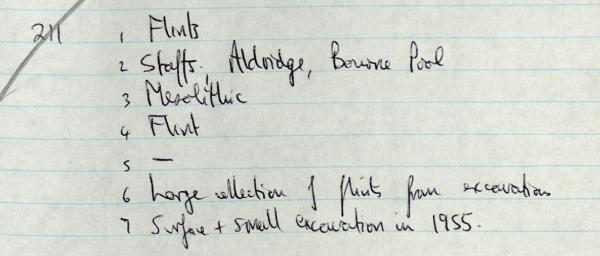 211 1 Flints
2 Staffs, Aldridge, Bourne Pool
3 Mesolithic
4 Flint
5 —
6 Large collection of flints from excavations
7 Surface + small excavation in 1955.